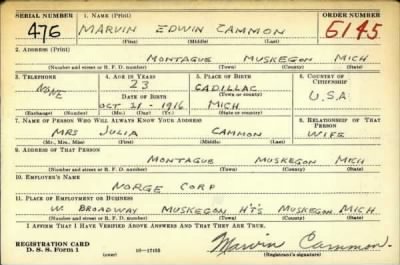 SERIAL NUMBER 1. NAME (Print) ORDER NUMBER
476 MARVIN EDWIN CAMMON 6145
(First) (Middle) (Last)
2. ADDRESS (Print)
MONTAGUE MUSKEGON MICH
(Number and street or R. F. D. number) (Town) (County) (State)
3. TELEPHONE 4. AGE IN YEARS 5. PLACE OF BIRTH 6. COUNTRY OF CITIZENSHIP
NONE 23 CADILLAC
DATE OF BIRTH (Town or county) U.S.A.
OCT 21 - 1916 MICH
(Exchange) (Number) (Mo.) (Day) (Yr.) (State or country)
7. NAME OF PERSON WHO WILL ALWAYS KNOW YOUR ADDRESS 8. RELATIONSHIP OF THAT PERSON
MRS JULIA CAMMON WIFE
(Mr., Mrs., Miss) (First) (Middle) (Last)
9. ADDRESS OF THAT PERSON
MONTAGUE MUSKEGON MICH
(Number and street or R. F. D. number) (Town) (County) (State)
10. EMPLOYER'S NAME
NORGE CORP
11. PLACE OF EMPLOYMENT OR BUSINESS
W. BROADWAY MUSKEGON H'T'S MUSKEGON MICH
(Number and street or R. F. D. number) (Town) (County) (State)
I AFFIRM THAT I HAVE VERIFIED ABOVE ANSWERS AND THAT THEY ARE TRUE.
REGISTRATION CARD
D. S. S. Form 1 (over) 16-17105 Marvin Cammon
(Registrant's signature)